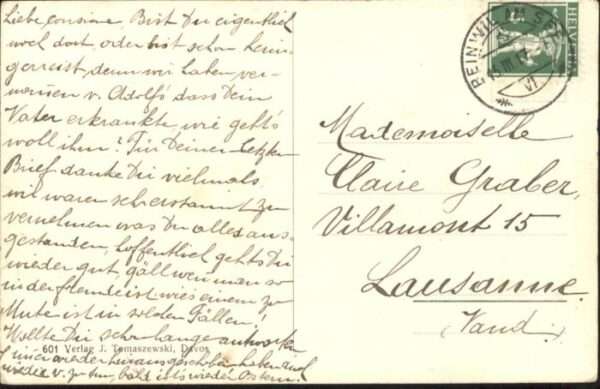 Liebe cousine Bist Du eigentlich
noch dort, oder bist schon heim-
gereist, denn wir haben ver-
nommen v. Adolf's dass Dein
Vater erkrankte, wie geht's
wohl ihm? Für Deinen letzten
Brief danke Dir vielmals
wir waren sch erstaunt zu
vernehmen was Du alles aus-
gestanden, hoffentlich geht's Dir
wieder gut, gäll wenn man so
in der fremde ist wie's einem zu
Mute ist in solchen Fällen!
Wollte Dir schon lange antworten
immer wieder hinausgeschoben haben
wieder v. zu bald ist's wieder Ostern
601 Verlag J. Tomaszewski, Davos
HELVETIA
REINWIL AM SEE
15 III 17
VI
Mademoiselle
Claire Graber,
Villamont 15
Lausanne.
(Vaud.)